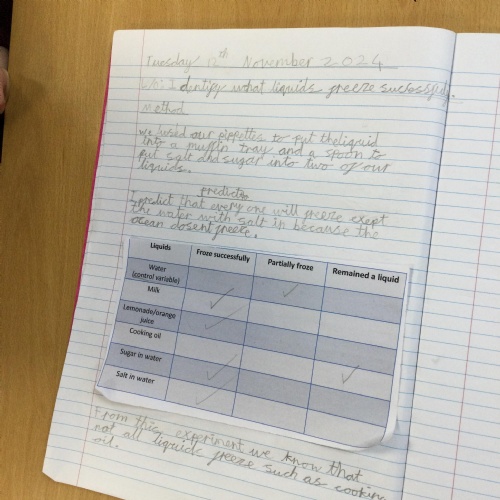 Tuesday 12th November 2024
Wo: Identify what liquids freeze sucsessfully.
Method
we used our pippettes to put the liquid
into a muffin tray and a spoon to
put salt and sugar into two of our
liquids.
prediction
I predict that every one will freeze exept
the water with salt in because the
ocean dosent freeze.
Liquids Froze successfully Partially froze Remained a liquid
Water
(control variable)
Milk
Lemonade/orange
juice
Cooking oil
Sugar in water
Salt in water
From this experiment we know that
not all liquids freeze such as cooking
oil.